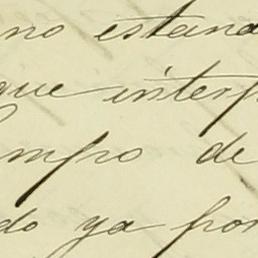 no estand
que interp
mpo de
do ya por